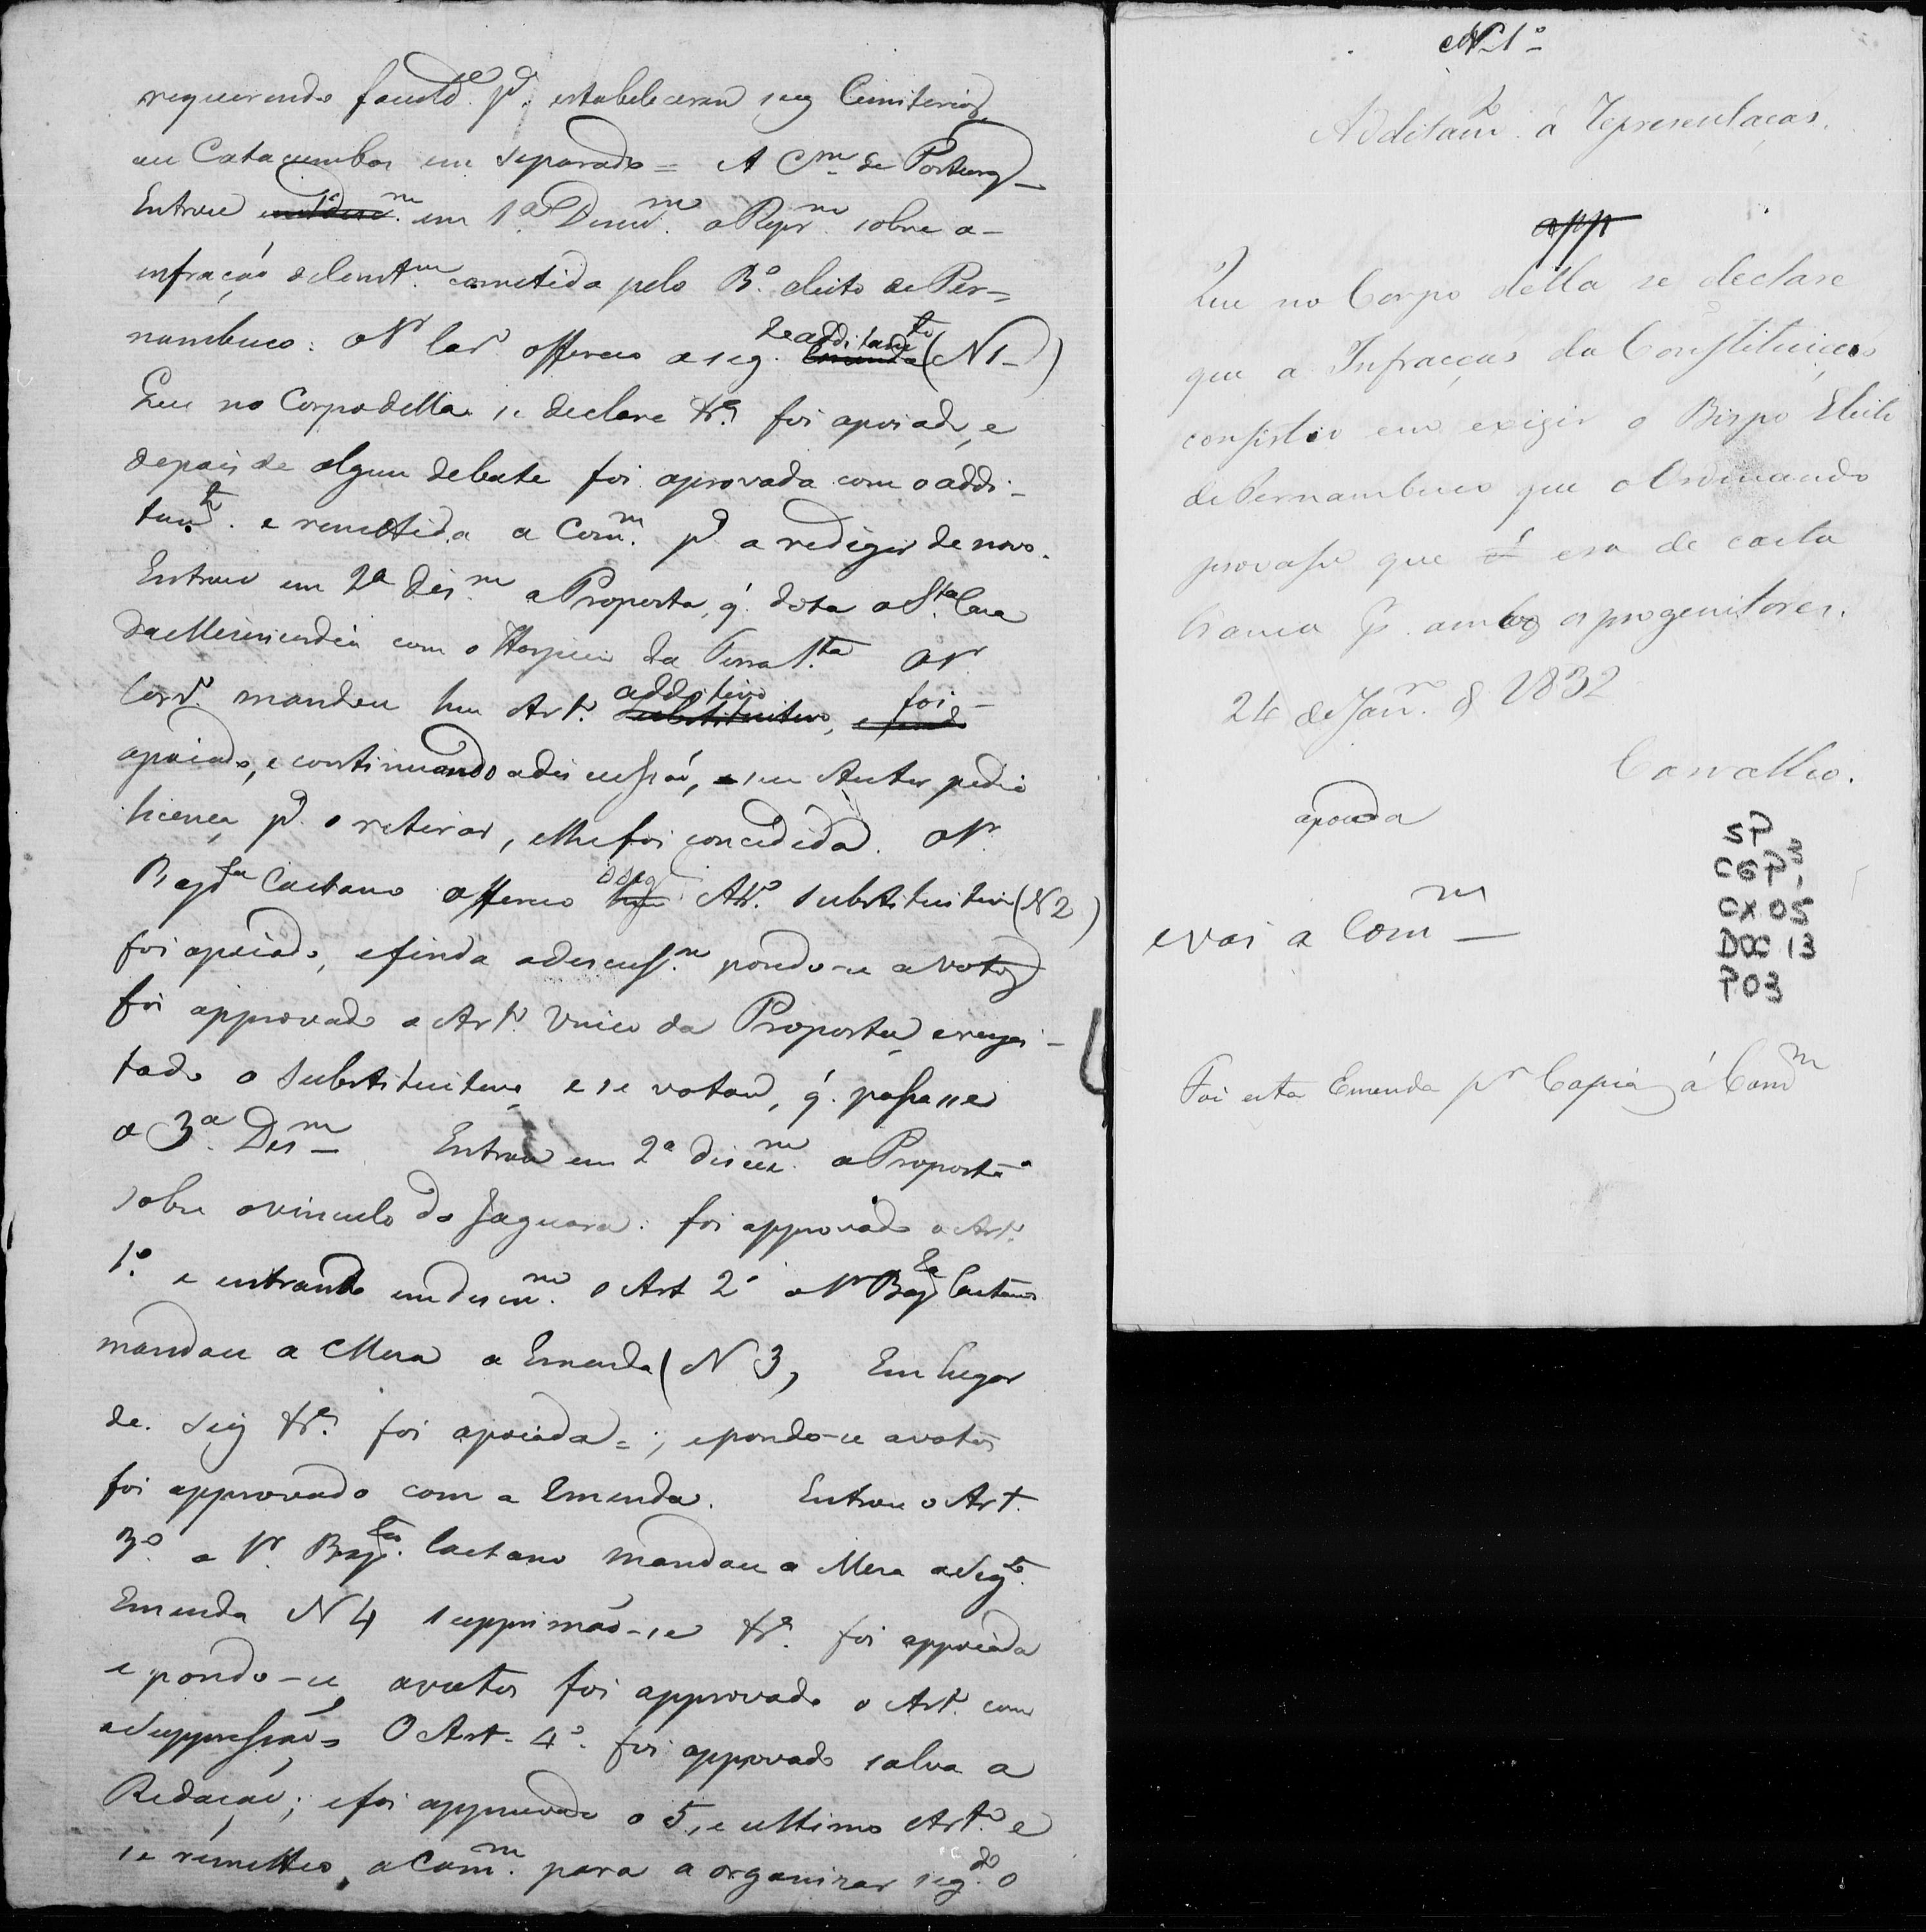 requerendo faculd.e p.a estabelecerem seus Cimiterios,
ou Catacumbas em separado = A Cm. de Posturas
Entrou em 1.ª Discus.m a Repr.m sobre a
infração da Const.m cometida pelo B.o eleito de Per-
nambuco: O Sr Car.o offereceo a seg.te additam.to (N1-)
Que no Corpo della se declare &.ª foi apoiado, e
depois de algum debate foi aprovada com o addi-
tam.to e remettida a Com.m p.a a redigir de novo.
Entrou em 2ª Dis.m a Proposta, q. dota a S.ta Casa
da Misericordia com o Hospicio da Terra S.ta O Sr
Carv.o mandou hum Art.o additivo foi
apoiado, e continuando a discussão, seu Autor pedio
licença p.a o retirar, e lhe foi concedida. O Sr.
Bap.ta Caetano offereceo o seg Art.o substitutivo (N2)
foi apoiado, e finda a discuss.m pondo-se a votos
foi approvado o Art.o Unico da Proposta, e regei-
tado o substitutivo, e se votou, q. passasse
a 3ª Dis.m Entrou em 2ª discus.m a Proposta
sobre o vinculo do Jaguara: foi approvado o Art.
1.º e entrando em discus.m o Art 2º o Sr Bap.ta Caetano
mandou a Mesa a Emenda (N 3, Em lugar
de. seis &.ª foi apoiada = ; e pondo-se a votos
foi approvado com a Emenda. Entrou o Art.
3º o Sr. Bap.ta Caetano mandou a Mesa a seg.te
Emenda N 4 supprimão-se &.ª foi appoiada
e pondo-se a votos foi approvado o Art.o com
a suppressão = O Art. 4º foi approvado salva a
Redação; e foi approvado o 5, e ultimo Art.o e
se remetteo, a Com.m para a organizar seg.do o
N 1º
Additam.to á Representação.
app
Que no Corpo della se declare
que a Infracção da Constituição
consistio em exigir o Bispo Eleito
de Pernambuco que o Ordinando
provasse que era de casta
branca p. ambos os progenitores.
24 de Jan.ro d 1832
Carvalho.
apoiada
e vai a Com.m
SP
CGP, 3
CX 05
DOC 13
P03
Foi esta Emenda p.r Copia á Com.m